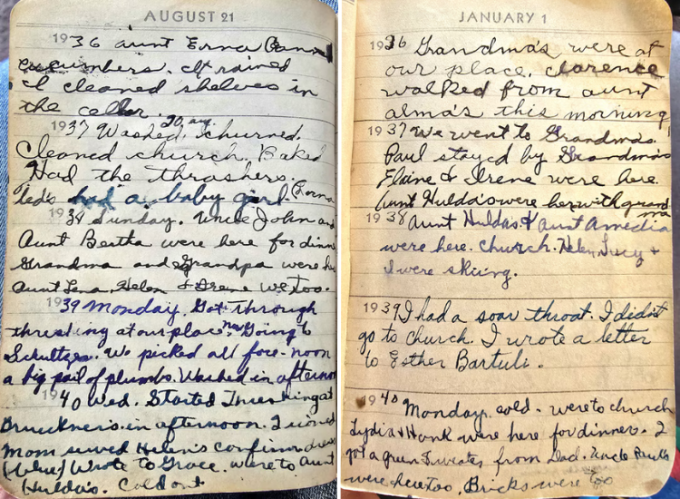 AUGUST 21
1936 aunt Erna
cucumbers. It rained
I cleaned shelves in
the cellar.
1937 Washed, churned.
Cleaned church. Baked
Had the thrashers.
Ted's had a baby girl.
1938 Sunday. Uncle John and
Aunt Bertha were here for dinn
Grandma and Grandpa were her
aunt Lena. Helen & Irene we too.
1939 Monday. Got through
threshing at our place. Going to
Schultzes. We picked all fore-noon
a big pail of plumbs. Washed in afternoon
1940 Wed. Started Threshing at
Bruckner's in afternoon. I ironed
Mom sewed Helen's confirm dress
(blue) Wrote to Grace. were to Aunt
Hulda's. Cold out
JANUARY 1
1936 Grandma's were at
our place. Clarence
walked from aunt
alma's this morning
1937 We went to Grandma's
Paul stayed by Grandma's
Elaine & Irene were here.
Aunt Hulda's were her with grand
ma
1938 Aunt Huldas. & Aunt Amedia
were here. Church. Helen, Lucy &
I were skiing.
1939 I had a soar throat. I didn't
go to church. I wrote a letter
to Esther Bartuli.
1940 Monday. cold. were to church
Lydia & Hank were here for dinner. I
got a green Sweater from Dad. Uncle Pauls
were here too. Bricks were too